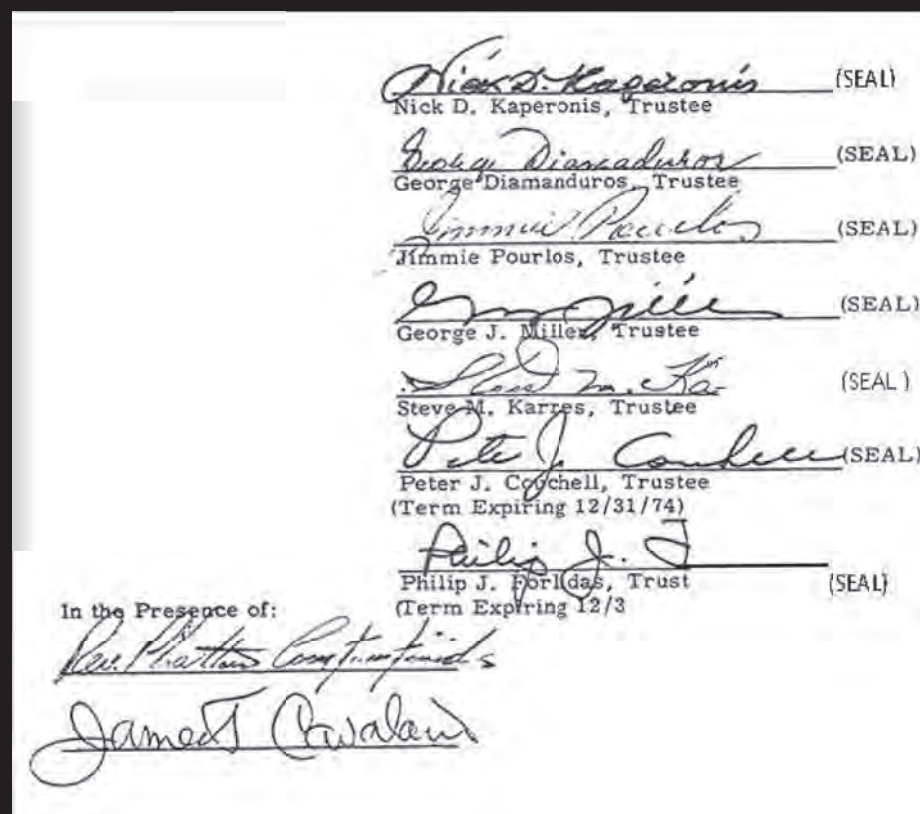 Nick D. Kaperonis (SEAL)
Nick D. Kaperonis, Trustee
George Diamaduros (SEAL)
George Diamanduros, Trustee
Jimmie Pourlos (SEAL)
Jimmie Pourlos, Trustee
(SEAL)
George J. Miller, Trustee
M. Ka (SEAL)
Steve M. Karres, Trustee
Pete J. (SEAL)
Peter J. Couchell, Trustee
(Term Expiring 12/31/74)
Philip J.
Philip J. Forlidas, Trust (SEAL)
(Term Expiring 12/3
In the Presence of:
Rev.
James T